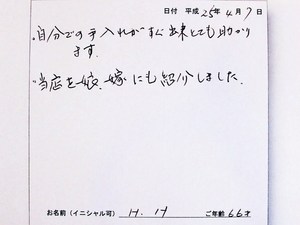 日付 平成 25年 4月 7日
・自分での手入れがすぐ出来とても助かり
ます。
・当店を娘、嫁にも紹介しました。
お名前（イニシャル可） H.H ご年齢 66才